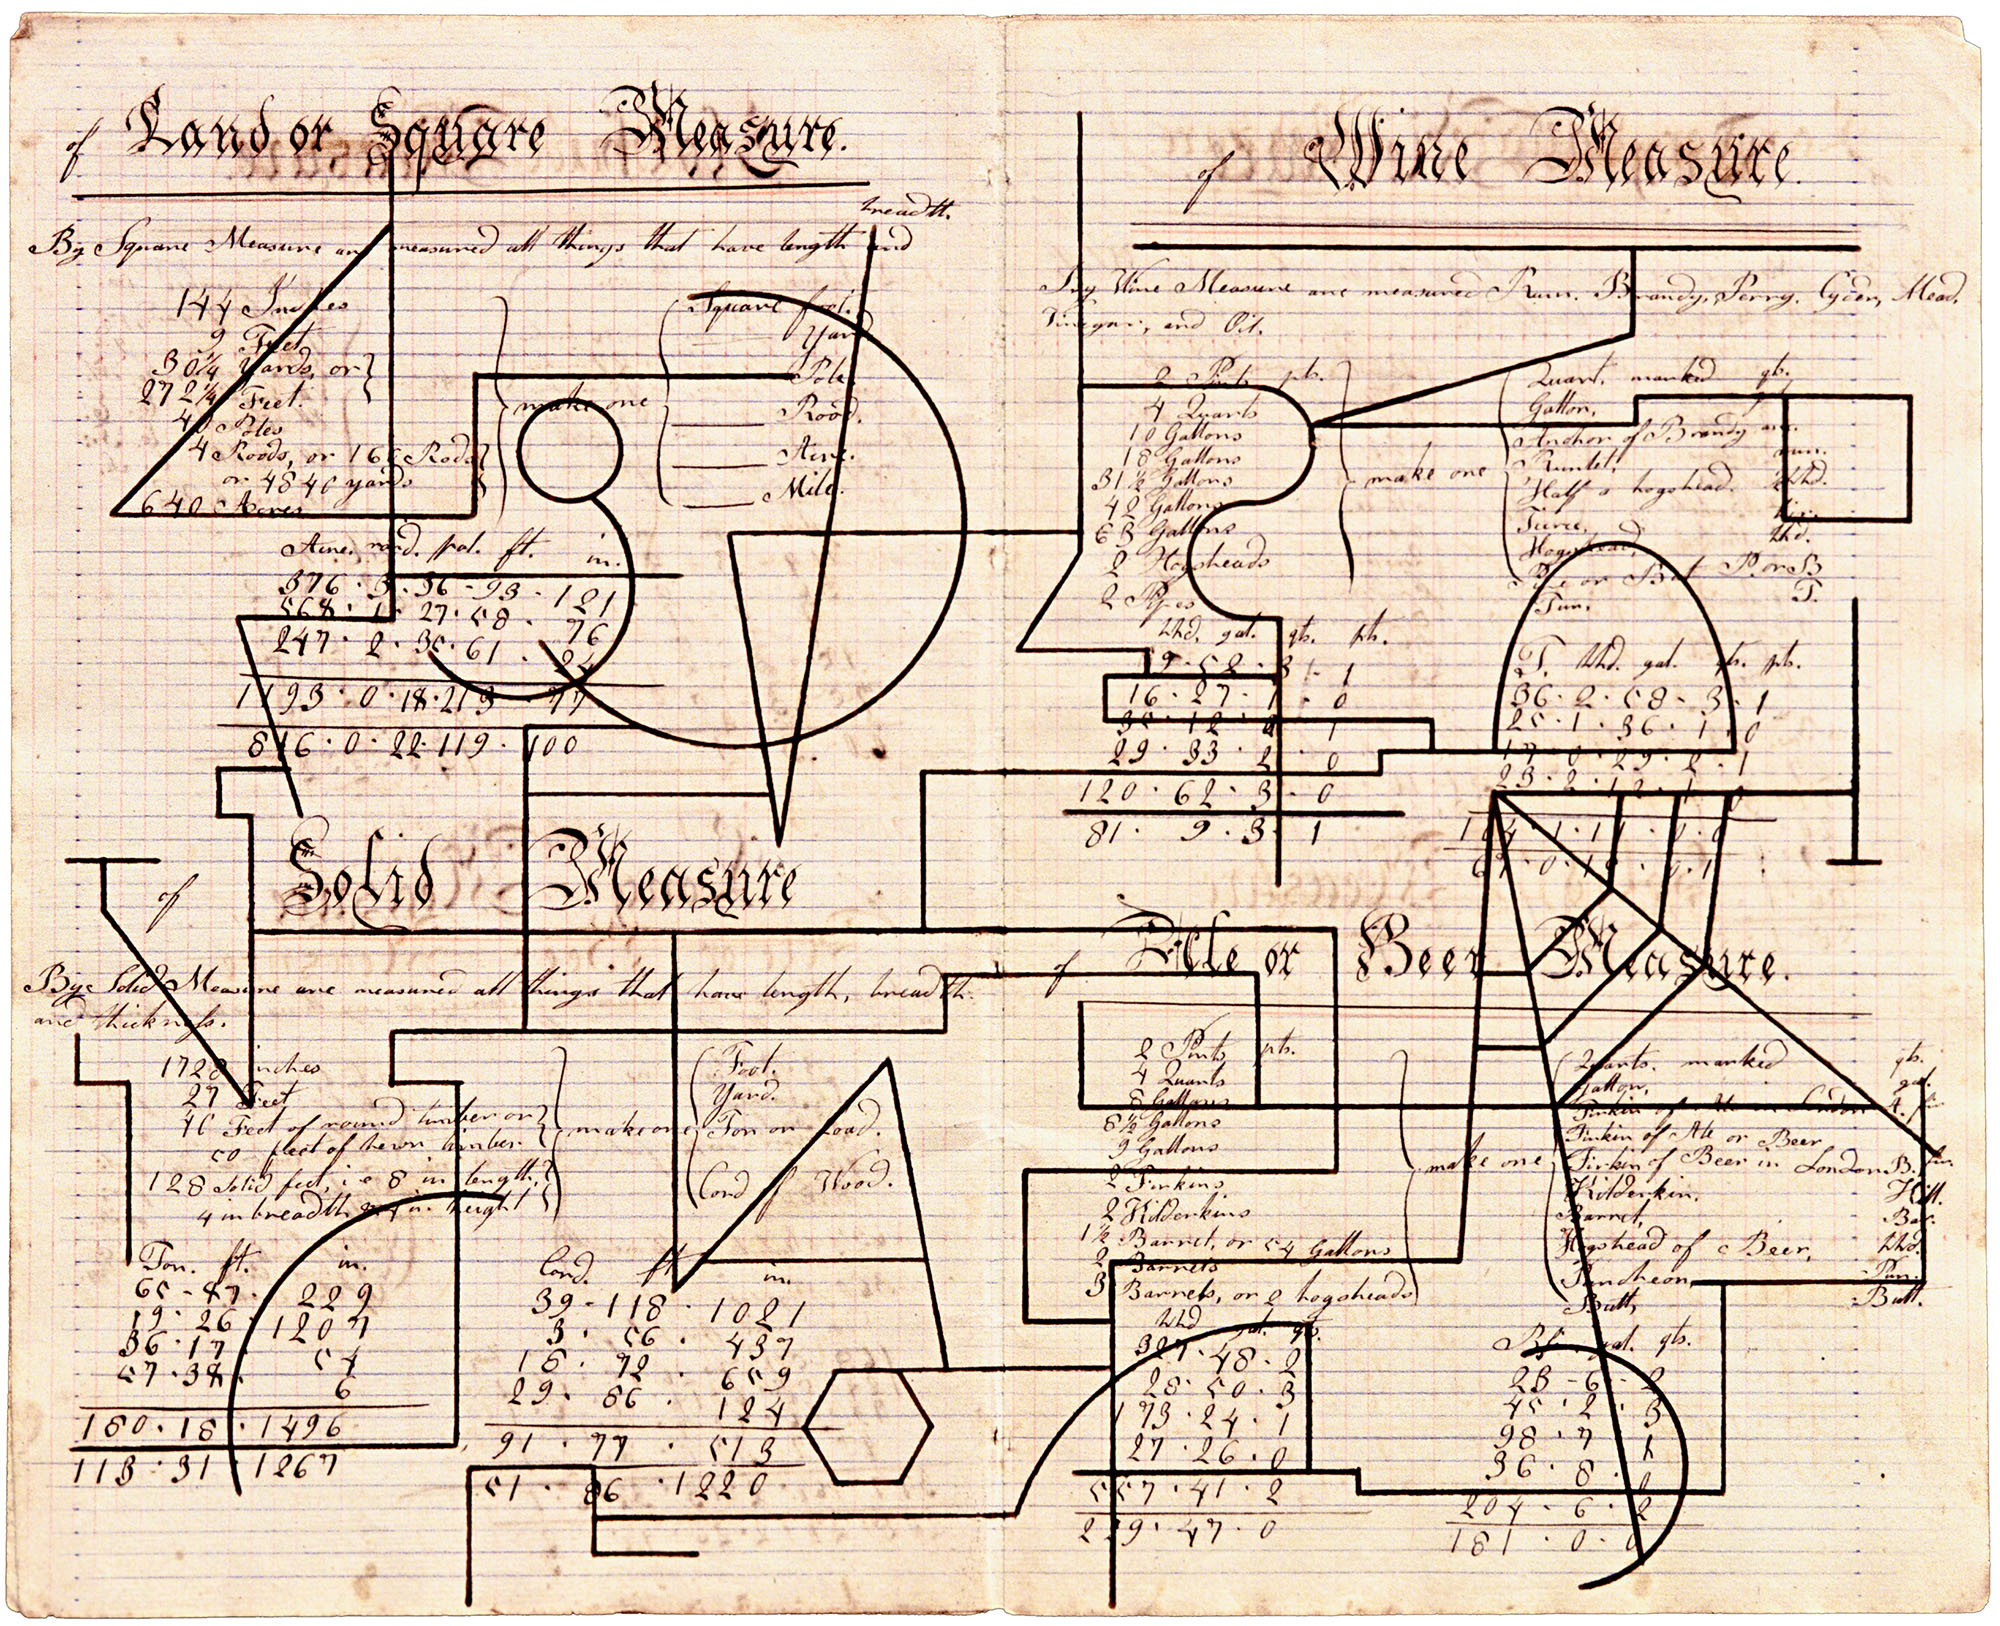 of Land or Square Measure.
breadth.
By Square Measure are measured all things that have length and
144 Inches
9 Feet
30 1/4 Yards, or
272 1/4 Feet.
40 Poles
4 Roods, or 160 Rods
or 4840 yards
640 Acres
make one
Square foot.
Yard
Pole.
Rood.
Acre.
Mile.
Acre. rood. pol. ft. in.
376 · 3 · 36 - 93 - 121
568 · 1 · 27 · 58 · 76
247 · 2 · 35 · 61 ·
1193 · 0 · 18 · 219 · 77
816 · 0 · 22 · 119 · 100
of Solid Measure
By Solid Measure are measured all things that have length, breadth
and thickness.
1728 inches
27 Feet
40 Feet of round timber or
50 feet of hewn timber.
128 solid feet, i e 8 in length,
4 in breadth & 4 in height
make one
Foot.
Yard.
Ton or Load.
Cord of Wood.
Ton. ft. in.
65 - 47 · 229
19 · 26 · 1207
36 · 17 · 54
57 · 38 · 6
180 · 18 · 1496
113 · 31 · 1267
Cord. ft. in.
39 - 118 · 1021
3 · 56 · 437
18 · 72 · 659
29 · 86 · 124
91 · 77 · 513
51 · 86 · 1220
of Wine Measure.
By Wine Measure are measured Rum, Brandy, Perry, Cyder, Mead,
Vinegar, and Oil.
2 Pints pts.
4 Quarts
10 Gallons
18 Gallons
31 1/2 Gallons
42 Gallons
63 Gallons
2 Hogsheads
2 Pipes
make one
Quart, marked qts.
Gallon,
Anchor of Brandy anc.
Runlet, run.
Half a hogshead. hhd.
Tierce,
Hogshead, hhd.
Pipe or But P. or B
Tun. T.
hhd. gal. qts. pts.
9 · 52 · 3 · 1
16 · 27 · 1 · 0
35 · 12 · 1
29 · 33 · 2 · 0
120 · 62 · 3 · 0
81 · 9 · 3 · 1
T. hhd. gal. qts. pts.
36 · 2 · 58 - 3 · 1
25 · 1 · 36 · 1 · 0
17 · 0 · 29 · 2 · 1
23 · 2 · 12 · 1 · 0
of Ale or Beer Measure.
2 Pints pts.
4 Quarts
8 Gallons
8 1/2 Gallons
9 Gallons
2 Firkins
2 Kilderkins
1 1/2 Barrel, or 54 Gallons
2 Barrels
3 Barrels, or 2 hogsheads
make one
Quarts. marked qts.
Gallon, gal.
Firkin of Ale in London A. fir.
Firkin of Ale or Beer
Firkin of Beer in London B. fir.
Kilderkin. Kil.
Barrel, Bar.
Hogshead of Beer, hhd.
Puncheon, Pun.
Butt, Butt.
hhd gal. qts.
327 · 48 · 2
28 · 50 · 3
173 · 24 · 1
27 · 26 · 0
557 · 41 · 2
229 · 47 · 0
gal. qts.
23 - 6 - 2
45 · 2 · 3
98 · 7 · 1
36 · 8 ·
204 · 6 · 2
181 · 0 · 0